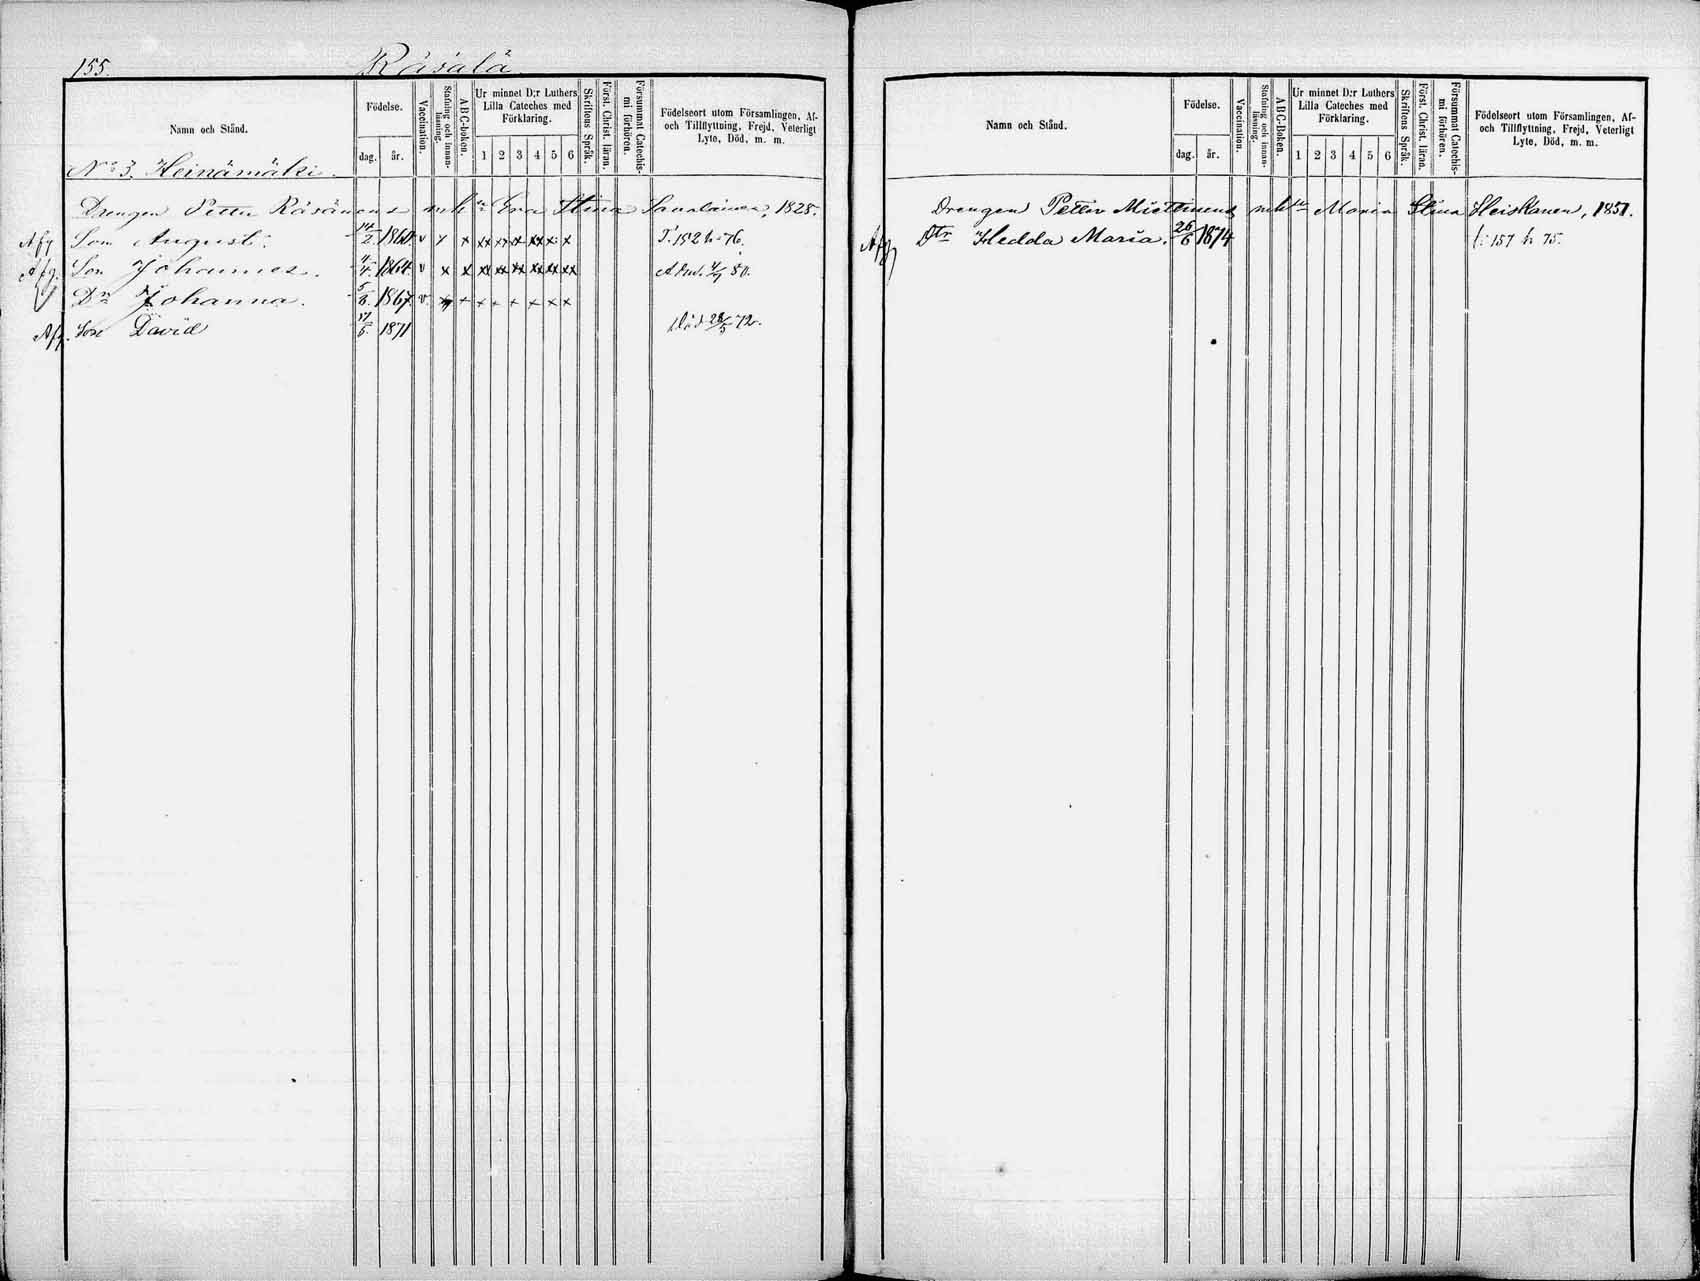 155. Räsälä
Namn och Stånd.
Födelse.
dag. år.
Vaccination.
Stafning och innanläsning.
ABC-boken.
Ur minnet D:r Luthers Lilla Cateches med Förklaring.
1 2 3 4 5 6
Skriftens Språk.
Först. Christ. läran.
Försummat Catechismi förhören.
Födelseort utom Församlingen, Af- och Tillflyttning, Frejd, Veterligt Lyte, Död, m. m.
No 3. Heinämäki.
Drengen Petter Räsänens mh Eva Stina Savolainen, 1828.
Afg Son August. 14/2 1860 v x x xx xx x xx x x T. 152 h-76.
Afg. Son Johannes. 4/4 1864 v x x xx xx xx xx xx xx
Dr Johanna. 5/8 1867. v. x + x + + + x x
Afg. Son David 17/6. 1871 Död 28/5 72.
Namn och Stånd.
Födelse.
dag. år.
Vaccination.
Stafning och innanläsning.
ABC-Boken.
Ur minnet D:r Luthers Lilla Cateches med Förklaring.
1 2 3 4 5 6
Skriftens Språk.
Först. Christ. läran.
Försummat Catechismi förhören.
Födelseort utom Församlingen, Af- och Tillflyttning, Frejd, Veterligt Lyte, Död, m. m.
Drengen Petter Miettinens mh Maria Stina Heiskanen, 1851.
Afg Dtr Hedda Maria. 26/6 1874 t: 157 h 75.